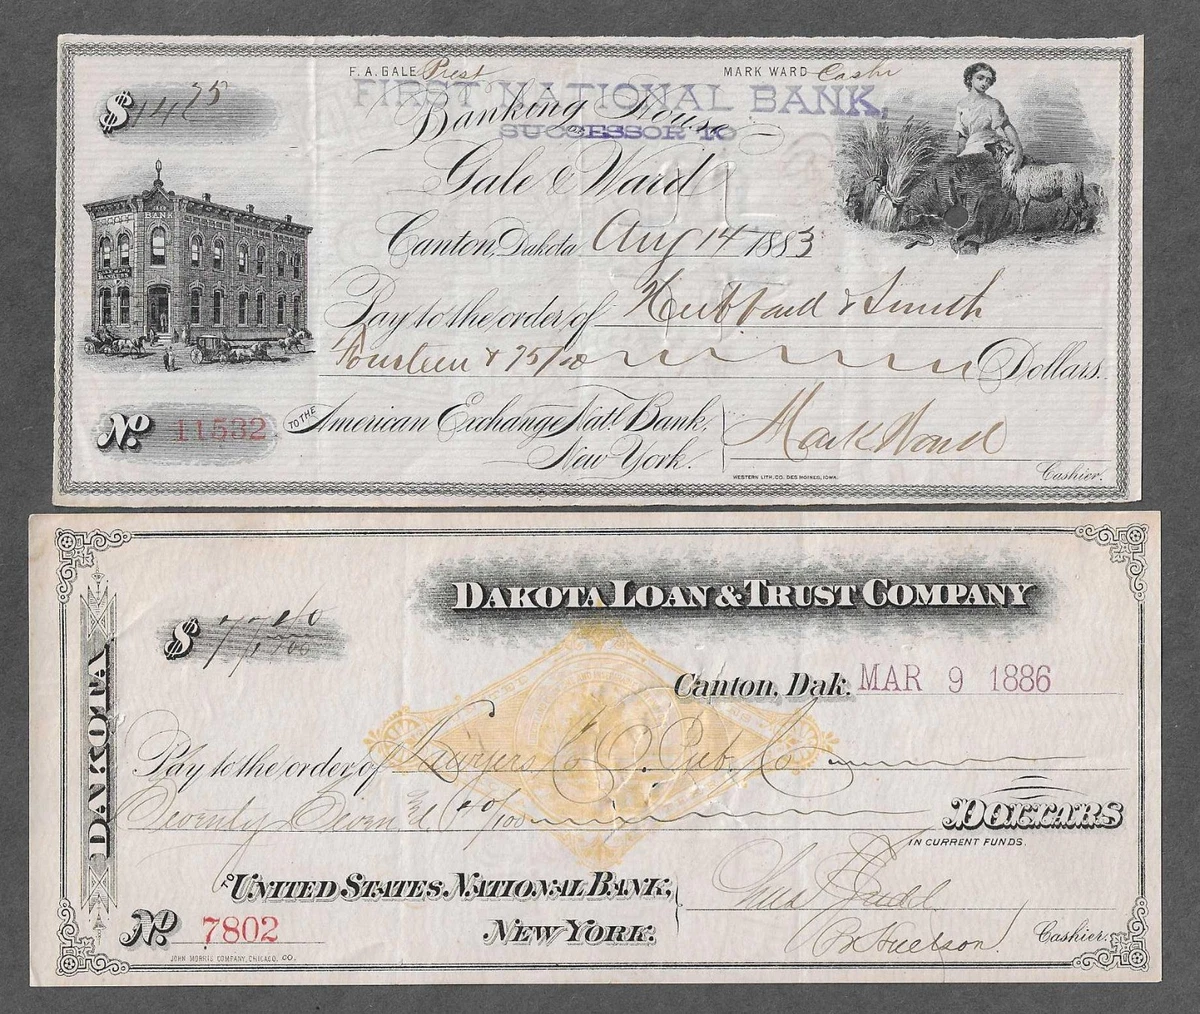 F. A. GALE Prest MARK WARD Cashr
FIRST NATIONAL BANK,
Banking House
SUCCESSOR TO
$14 75
Gale & Ward
BANK
Canton, Dakota Aug 14 1883
Pay to the order of Hubbard & Smith
Fourteen & 75/00 Dollars.
No. 11532
TO THE American Exchange Natl. Bank,
New York.
Mark Ward
Cashier.
WESTERN LITH. CO. DES MOINES, IOWA.
DAKOTA LOAN & TRUST COMPANY
$77 40/100
Canton, Dak. MAR 9 1886
DAKOTA
Pay to the order of Lawyers Co. Pub. Co
Seventy Seven & 40/100 DOLLARS
IN CURRENT FUNDS.
TO UNITED STATES NATIONAL BANK,
NEW YORK.
No 7802
Cashier.
JOHN MORRIS COMPANY, CHICAGO.